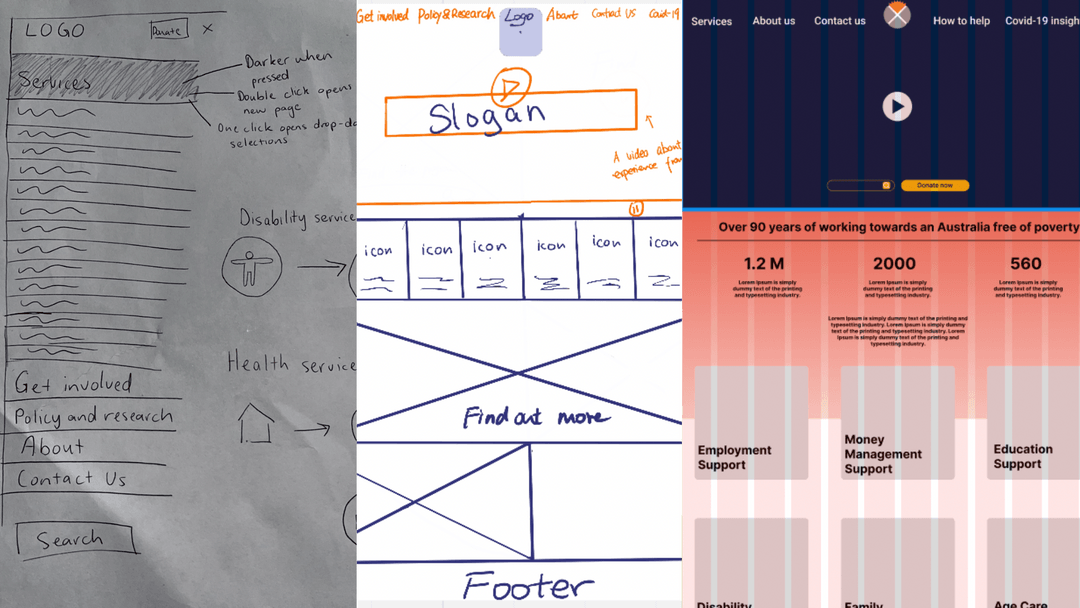 LOGO
Donate
Services
Darker when
pressed
Double click opens
new page
One click opens drop-do
selections
Disability service
Health service
Get involved
Policy and research
About
Contact Us
Search
Get involved Policy & Research Logo About Contact US Covid-19
Slogan
A video about
experience from
icon icon icon icon icon icon
Find out more
Footer
Services About us Contact us How to help Covid-19 insigh
Donate now
Over 90 years of working towards an Australia free of poverty
1.2 M
Lorem Ipsum is simply
dummy text of the printing
and typesetting industry.
2000
Lorem Ipsum is simply
dummy text of the printing
and typesetting industry.
560
Lorem Ipsum is simply
dummy text of the printing
and typesetting industry.
Lorem Ipsum is simply dummy text of the printing and
typesetting industry. Lorem Ipsum is simply dummy
text of the printing and typesetting industry. Lorem
Ipsum is simply dummy text of the printing and
typesetting industry.
Employment
Support
Money
Management
Support
Education
Support
Disability
Family
Age Care